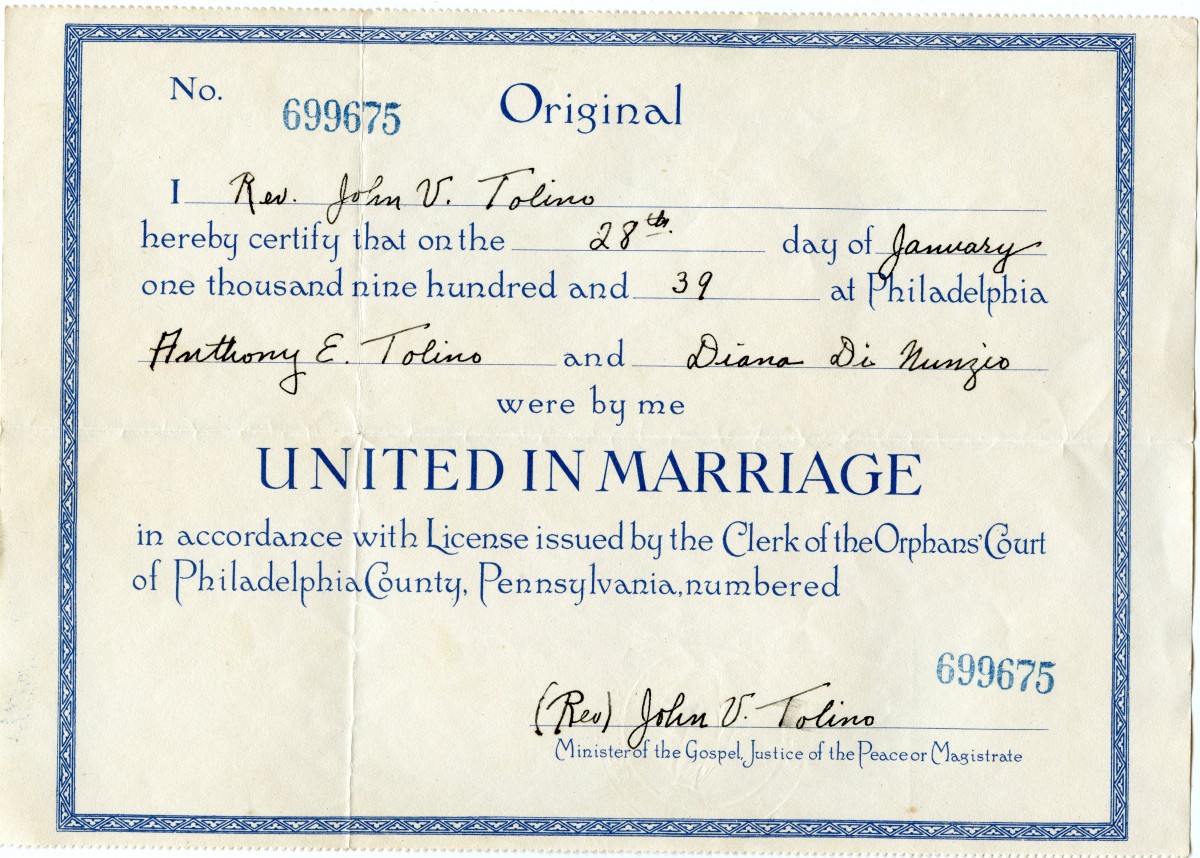 No. 699675 Original
I Rev. John V. Tolino
hereby certify that on the 28th. day of January
one thousand nine hundred and 39 at Philadelphia
Anthony E. Tolino and Diana Di Nunzio
were by me
UNITED IN MARRIAGE
in accordance with License issued by the Clerk of the Orphans' Court
of Philadelphia County, Pennsylvania, numbered
699675
(Rev) John V. Tolino
Minister of the Gospel, Justice of the Peace or Magistrate